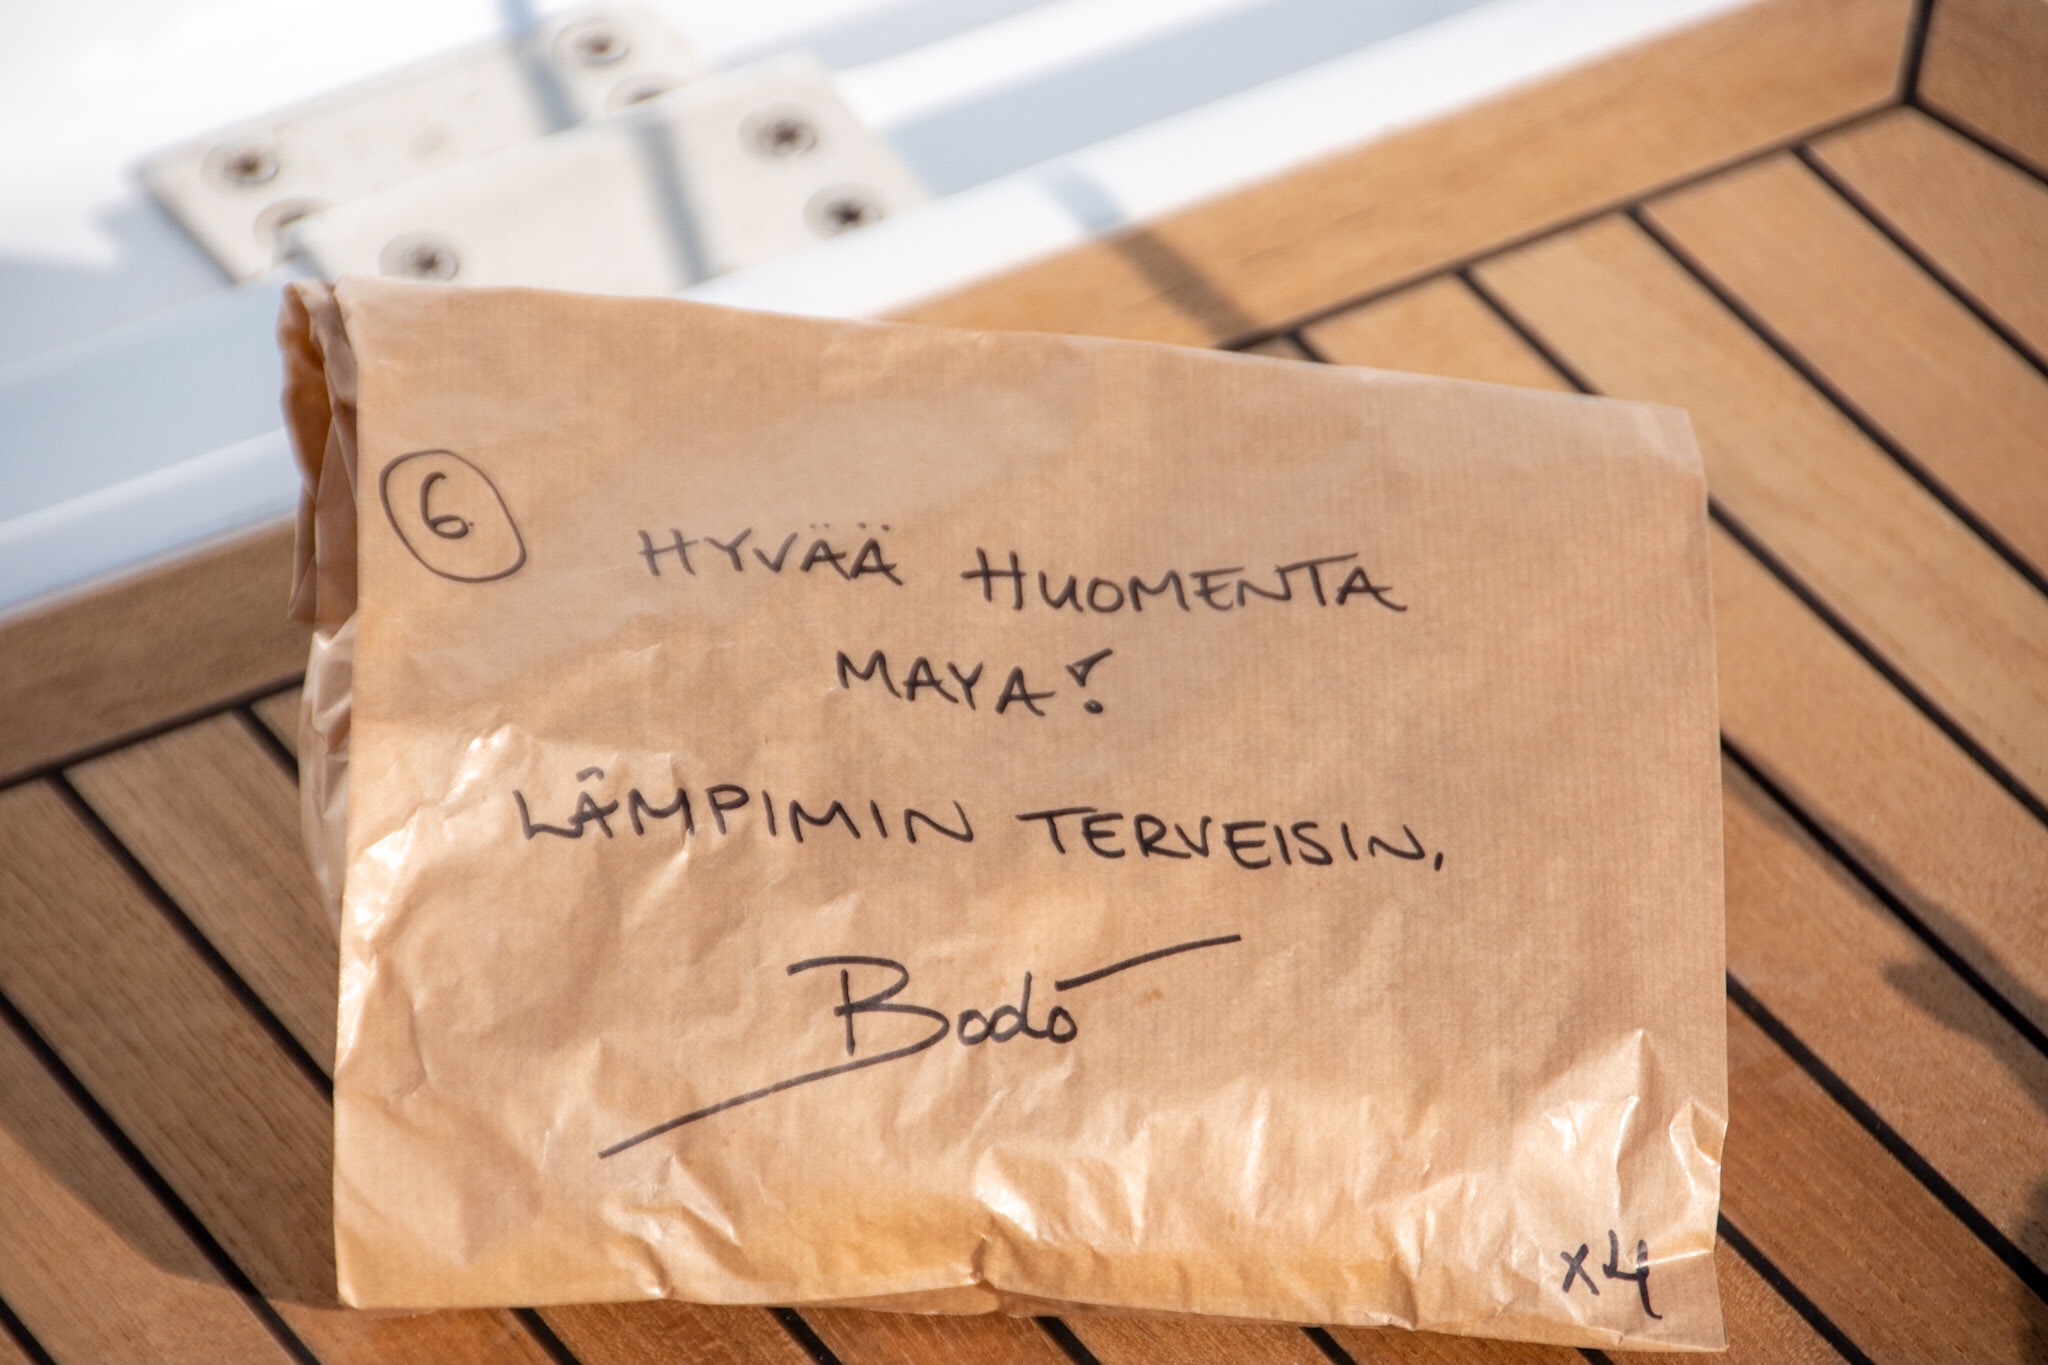 6.
HYVÄÄ HUOMENTA
MAYA!
LÄMPIMIN TERVEISIN,
Bodo
x4